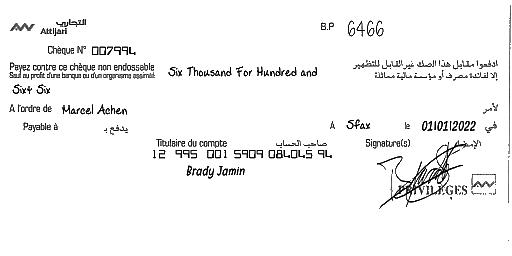 التجاري
Attijari
B.P 6466
Chèque N° 007994
Payez contre ce chèque non endossable
Sauf au profit d'une banque ou d'un organisme assimilé
Six Thousand For Hundred and
ادفعوا مقابل هذا الصك غير القابل للتظهير
إلا لفائدة مصرف أو مؤسسة مالية مماثلة
Sixt Six
A l'ordre de Marcel Achen لأمر
Payable à يدفع بـ A Sfax le 01/01/2022 في
Titulaire du compte صاحب الحساب Signature(s) الإمضاء
12 995 001 5909 084045 94
Brady Jamin
PRIVILEGES